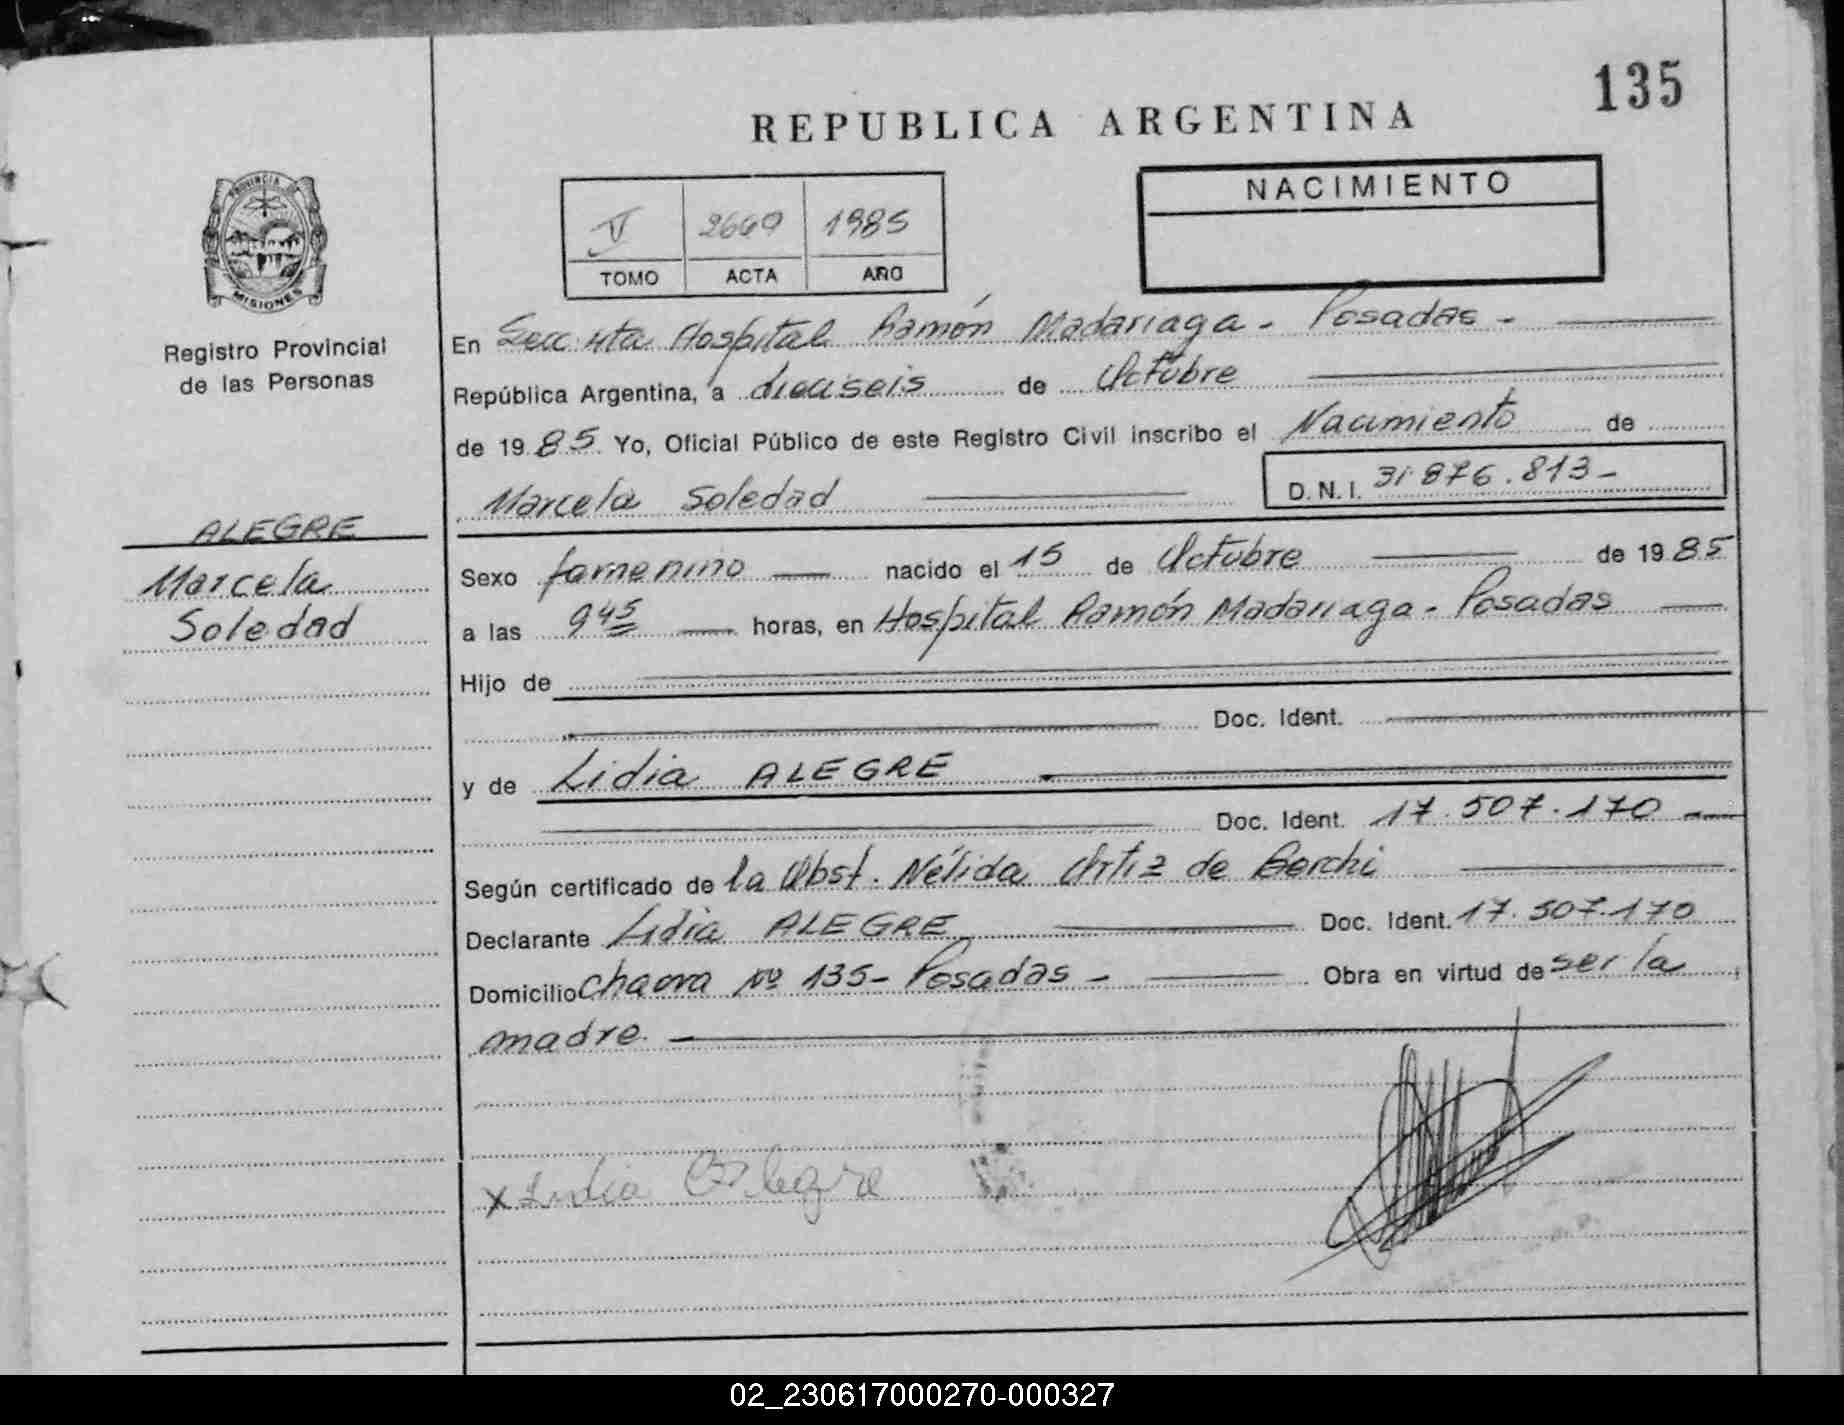 135
REPUBLICA ARGENTINA
V 2669 1985
TOMO ACTA AÑO
NACIMIENTO
PROVINCIA DE
MISIONES
Registro Provincial
de las Personas
En Secc. 4ta Hospital Ramón Madariaga - Posadas -
República Argentina, a dieciseis de Octubre
de 1985 Yo, Oficial Público de este Registro Civil inscribo el Nacimiento de
Marcela Soledad D.N.I. 31.876.813-
ALEGRE
Marcela
Soledad
Sexo femenino nacido el 15 de Octubre de 1985
a las 9 45 horas, en Hospital Ramón Madariaga - Posadas
Hijo de
Doc. Ident.
y de Lidia ALEGRE
Doc. Ident. 17.507.170
Según certificado de la Obst. Nélida Ortiz de
Declarante Lidia ALEGRE Doc. Ident. 17.507.170
Domicilio Chacra Nº 135- Posadas - Obra en virtud de ser la
madre.
x Lidia Alegre
02_230617000270-000327